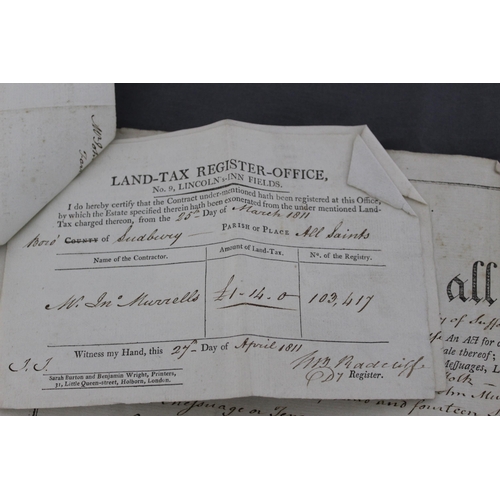 LAND-TAX REGISTER-OFFICE,
No. 9, LINCOLN's-INN FIELDS.
I do hereby certify that the Contract under-mentioned hath been registered at this Office,
by which the Estate specified therein hath been exonerated from the under mentioned Land-
Tax charged thereon, from the 25th Day of March 1811
Boro' COUNTY of Sudbury PARISH or PLACE All Saints
Name of the Contractor. Amount of Land-Tax. No. of the Registry.
Mr. Jno. Murrells £1-14-0 103,417
Witness my Hand, this 27th Day of April 1811
Radcliff
Dy Register.
Sarah Burton and Benjamin Wright, Printers,
31, Little Queen-street, Holborn, London.
all
of Suffolk
An Act for
thereof;
Messuages,
and fourteen